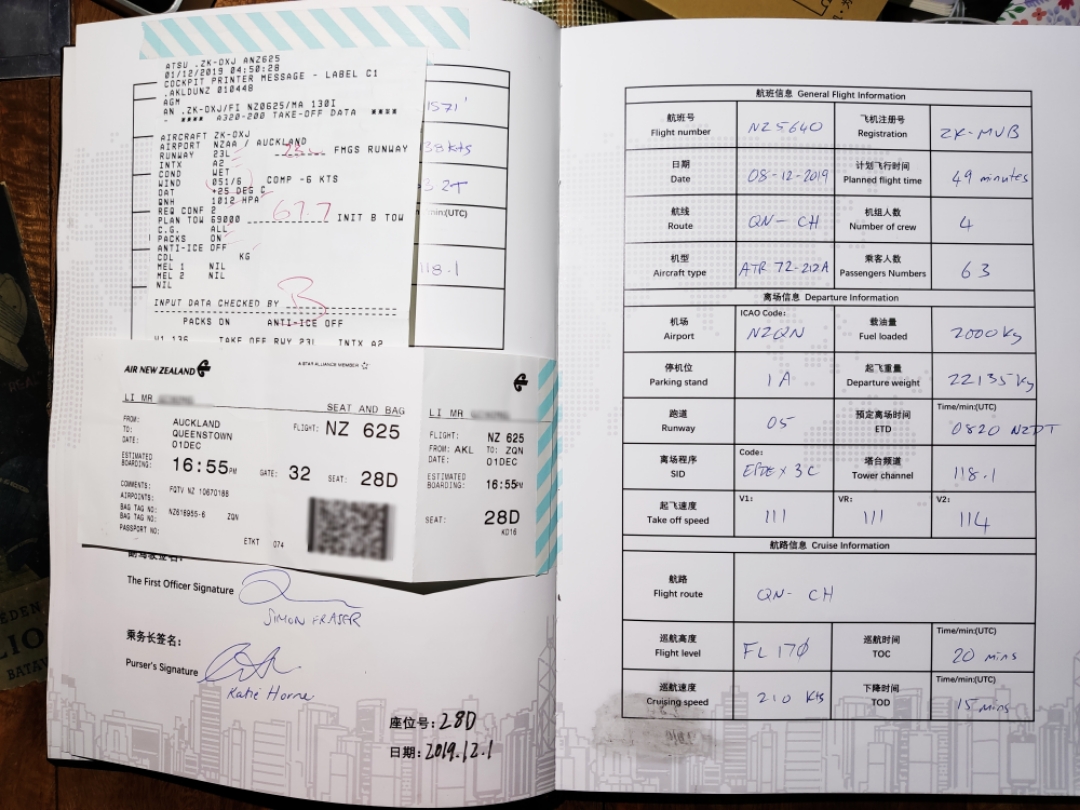 ATSU .ZK-OXJ ANZ625
01/12/2019 04:50:28
COCKPIT PRINTER MESSAGE - LABEL C1
.AKLDUNZ 010448
AGM
AN .ZK-OXJ/FI NZ0625/MA 130I
- **** A320-200 TAKE-OFF DATA ****
AIRCRAFT ZK-OXJ
AIRPORT NZAA / AUCKLAND
RUNWAY 23L 23L FMGS RUNWAY
INTX A2
COND WET
WIND 051/6 COMP -6 KTS
OAT +25 DEG C
QNH 1012 HPA
REQ CONF 2
PLAN TOW 69000 67.7 INIT B TOW
C.G. ALL
PACKS ON
ANTI-ICE OFF
CDL KG
MEL 1 NIL
MEL 2 NIL
NIL
INPUT DATA CHECKED BY
PACKS ON ANTI-ICE OFF
V1 136 TAKE OFF RWY 23L INTX A2
1571'
38 kts
3.2T
min(UTC)
118.1
AIR NEW ZEALAND
A STAR ALLIANCE MEMBER
LI MR
SEAT AND BAG
FROM: AUCKLAND
TO: QUEENSTOWN
DATE: 01DEC
FLIGHT: NZ 625
ESTIMATED
BOARDING: 16:55PM
GATE: 32 SEAT: 28D
COMMENTS: FQTV NZ 1067018B
AIRPOINTS:
BAG TAG NO: NZ618955-6 ZQN
BAG TAG NO:
PASSPORT NO:
ETKT 074
LI MR
FLIGHT: NZ 625
FROM: AKL TO: ZQN
DATE: 01DEC
ESTIMATED
BOARDING: 16:55PM
SEAT: 28D
KD16
The First Officer Signature
SIMON FRASER
乘务长签名:
Purser's Signature
Katie Horne
座位号: 28D
日期: 2019.12.1
航班信息 General Flight Information
航班号 Flight number NZ5640 飞机注册号 Registration ZK-MVB
日期 Date 08-12-2019 计划飞行时间 Planned flight time 49 minutes
航线 Route QN - CH 机组人数 Number of crew 4
机型 Aircraft type ATR 72-212A 乘客人数 Passengers Numbers 63
离场信息 Departure Information
机场 Airport ICAO Code: NZQN 载油量 Fuel loaded 2000kg
停机位 Parking stand 1A 起飞重量 Departure weight 22135kg
跑道 Runway 05 预定离场时间 ETD Time/min:(UTC) 0820 NZDT
离场程序 SID Code: 3C 塔台频道 Tower channel 118.1
起飞速度 Take off speed V1: 111 VR: 111 V2: 114
航路信息 Cruise Information
航路 Flight route QN - CH
巡航高度 Flight level FL 170 巡航时间 TOC Time/min:(UTC) 20 mins
巡航速度 Cruising speed 210 kts 下降时间 TOD Time/min:(UTC) 15 mins